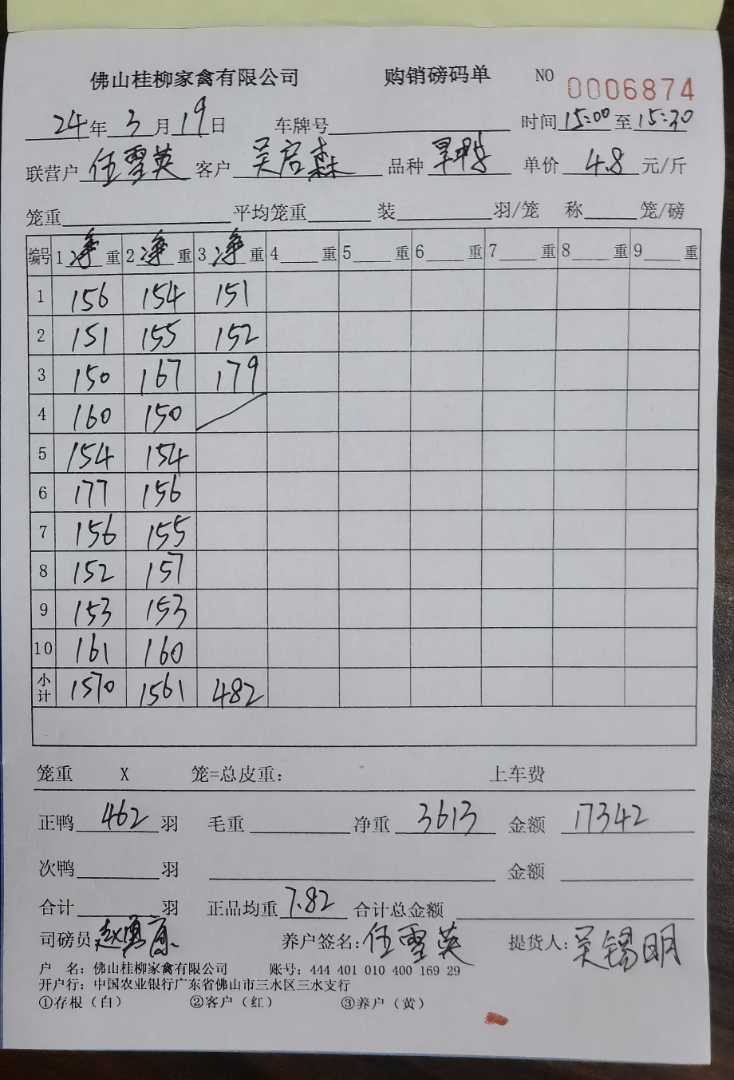 佛山桂柳家禽有限公司 购销磅码单 NO 0006874
24年3月19日 车牌号 时间15:00至15:30
联营户 任雪英 客户 吴启森 品种 旱鸭 单价 4.8 元/斤
笼重 平均笼重 装 羽/笼 称 笼/磅
编号 1 净 重 2 净 重 3 净 重 4 重 5 重 6 重 7 重 8 重 9 重
1 156 154 151
2 151 155 152
3 150 167 179
4 160 150
5 154 154
6 177 156
7 156 155
8 152 157
9 153 153
10 161 160
小计 1570 1561 482
笼重 X 笼=总皮重: 上车费
正鸭 462 羽 毛重 净重 3613 金额 17342
次鸭 羽 金额
合计 羽 正品均重 7.82 合计总金额
司磅员 赵勇 养户签名: 任雪英 提货人: 吴锡明
户 名: 佛山桂柳家禽有限公司 账号: 444 401 010 400 169 29
开户行: 中国农业银行广东省佛山市三水区三水支行
①存根(白) ②客户(红) ③养户(黄)